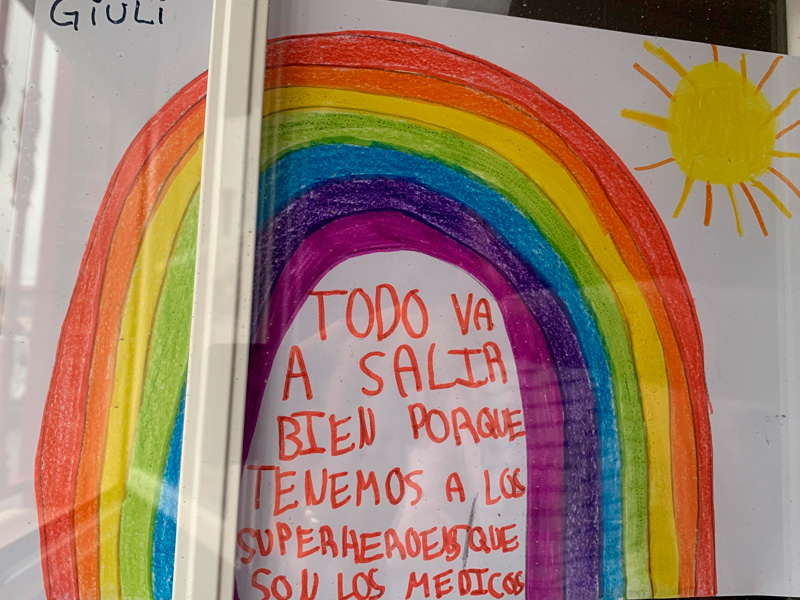 GIULI
TODO VA
A SALIR
BIEN PORQUE
TENEMOS A LOS
SUPERHEROES QUE
SON LOS MEDICOS